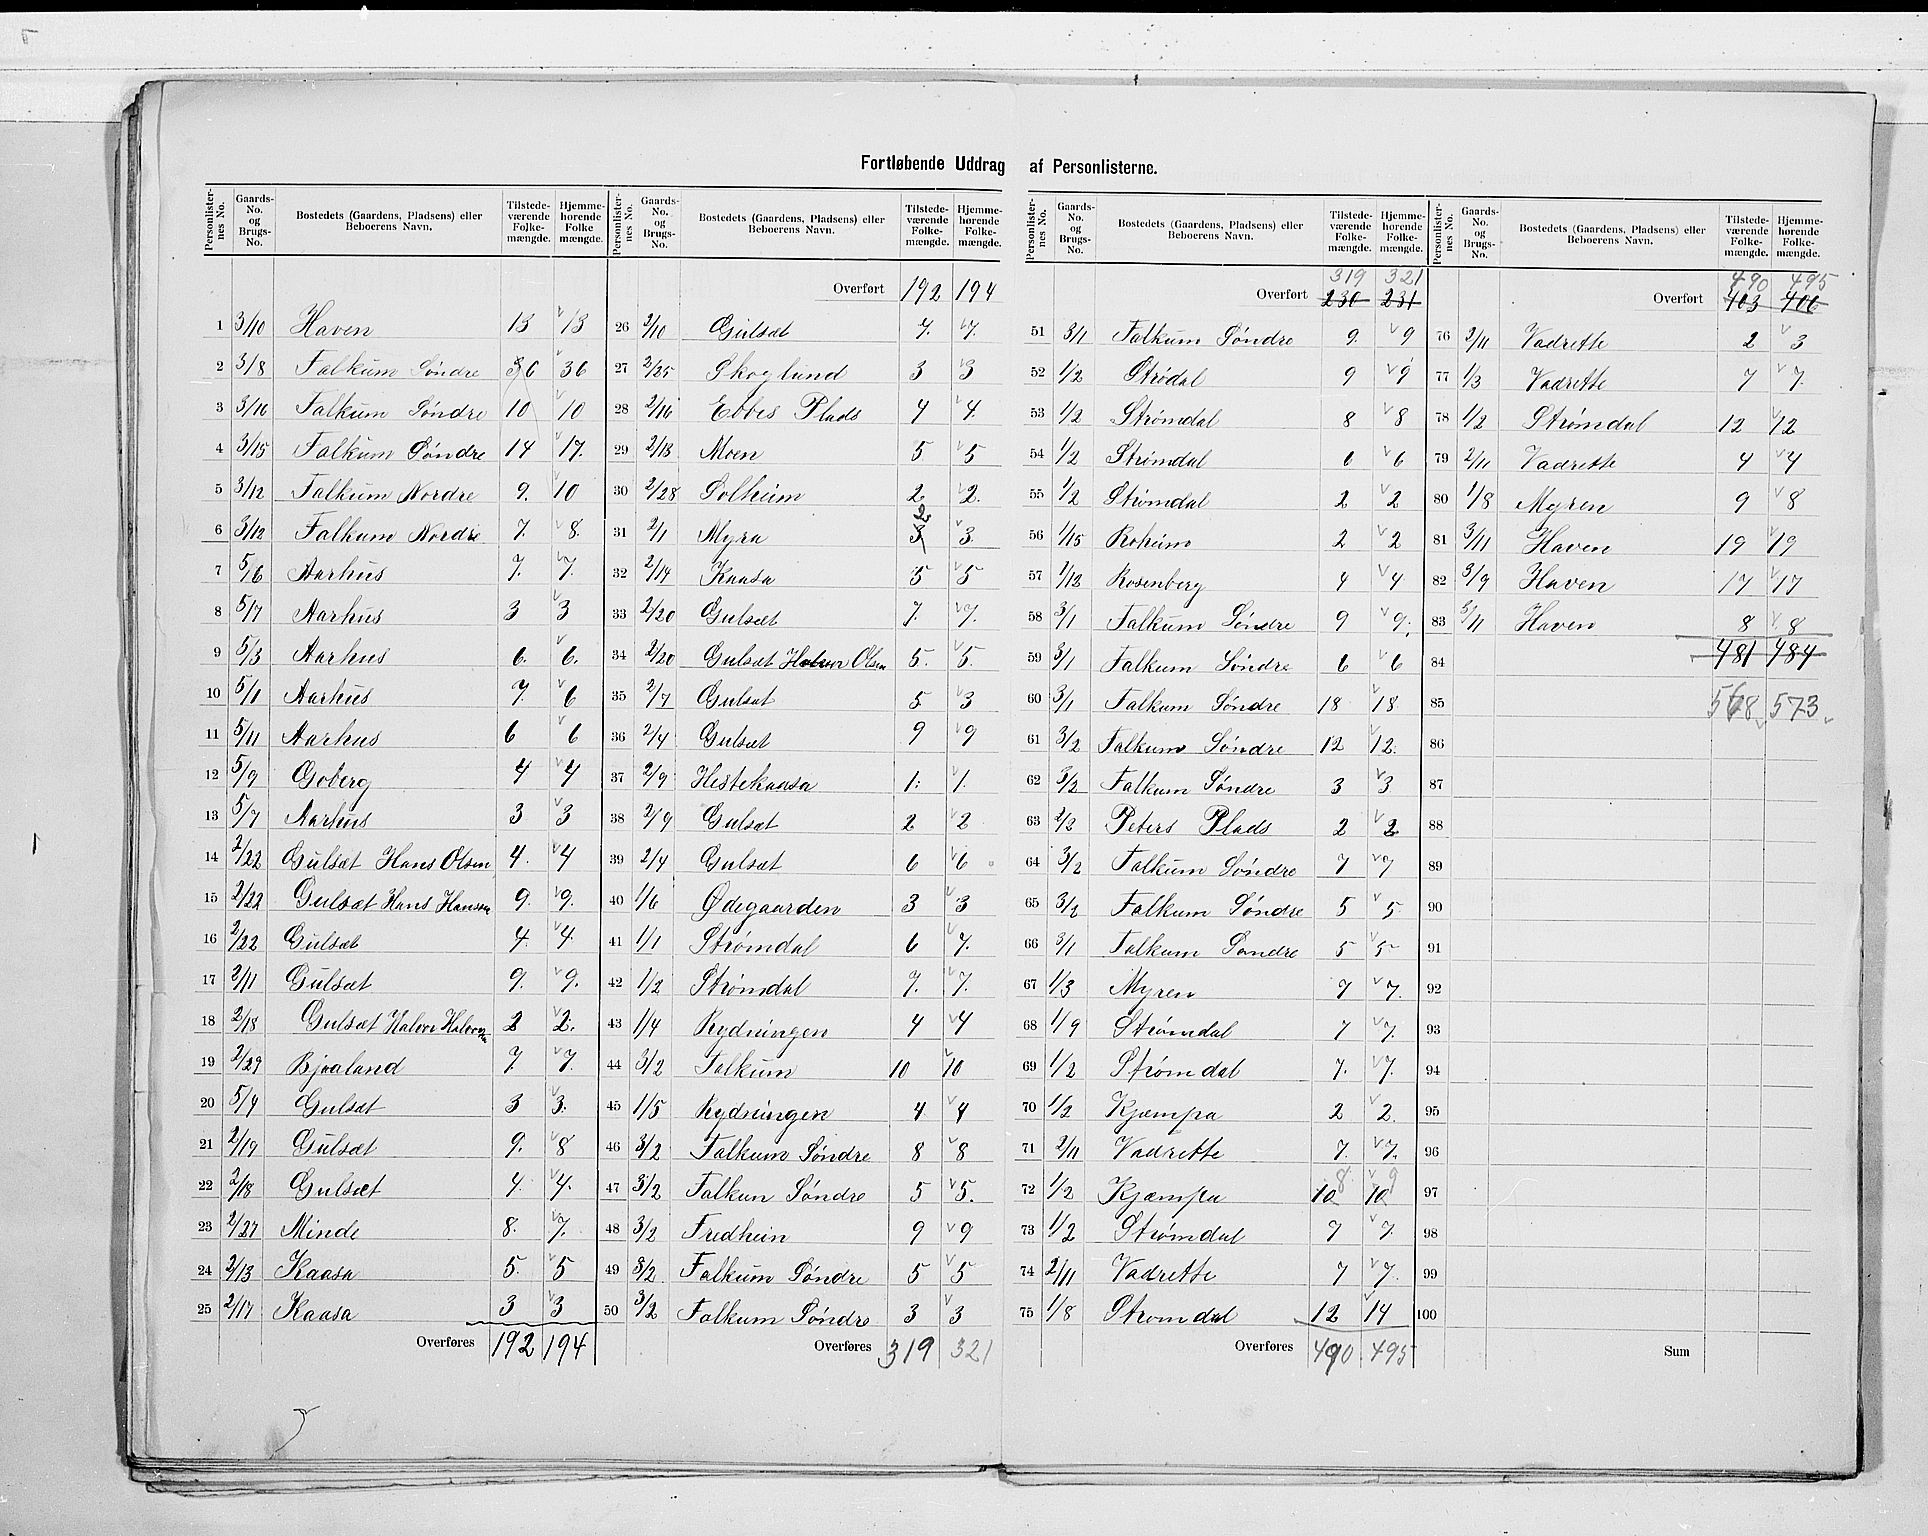 Fortløbende Uddrag af Personlisterne.
Personlisternes No. Gaards-No. og Brugs-No. Bostedets (Gaardens, Pladsens) eller Beboerens Navn. Tilstedeværende Folkemængde. Hjemmehørende Folkemængde.
1 3/10 Haven 13 13
2 3/8 Falkum Søndre 36 36
3 3/16 Falkum Søndre 10 10
4 3/15 Falkum Søndre 14 17.
5 3/12 Falkum Nordre 9. 10
6 3/12 Falkum Nordre 7. 8.
7 5/6 Aarhus 7. 7.
8 5/7 Aarhus 3 3
9 5/3 Aarhus 6. 6.
10 5/1 Aarhus 7. 6
11 5/11 Aarhus 6 6
12 5/9 Goberg 4 4
13 5/7 Aarhus 3 3
14 2/22 Gulsæt Hans Olsen 4. 4
15 2/22 Gulsæt Hans Hansen 9. 9.
16 2/22 Gulsæt 4. 4.
17 2/11 Gulsæt 9. 9.
18 2/18 Gulsæt Halvor Halvorsen 2 2.
19 2/29 Bjaaland 7. 7.
20 5/4 Gulsæt 3 3.
21 2/19 Gulsæt 9. 8
22 2/18 Gulsæt 4. 4.
23 2/27 Minde 8. 7.
24 2/13 Kaasa 5. 5
25 2/17 Kaasa 3 3
Overføres 192 194
Personlisternes No. Gaards-No. og Brugs-No. Bostedets (Gaardens, Pladsens) eller Beboerens Navn. Tilstedeværende Folkemængde. Hjemmehørende Folkemængde.
Overført 192 194
26 2/10 Gulsæt 7. 7.
27 2/25 Skoglund 3 3
28 2/16 Ebbes Plads 4 4.
29 2/13 Moen 5 5
30 2/28 Solheim 2 2.
31 2/1 Myra 3 2 3.
32 2/14 Kaasa 5 5
33 2/20 Gulsæt 7. 7.
34 2/20 Gulsæt Halvor Olsen 5. 5.
35 2/7 Gulsæt 5 3
36 2/4 Gulsæt 9 9
37 2/9 Hestekaasa 1. 1.
38 2/9 Gulsæt 2 2
39 2/4 Gulsæt 6 6
40 1/6 Ødegaarden 3 3
41 1/1 Strømdal 6 7.
42 1/2 Strømdal 7. 7.
43 1/4 Rydningen 4 4
44 3/2 Falkum 10 10
45 1/5 Rydningen 4 4
46 3/2 Falkum Søndre 8 8
47 3/2 Falkum Søndre 5 5.
48 3/2 Fredhein 9 9
49 3/2 Falkum Søndre 5 5
50 3/2 Falkum Søndre 3 3
Overføres 319 321
Personlisternes No. Gaards-No. og Brugs-No. Bostedets (Gaardens, Pladsens) eller Beboerens Navn. Tilstedeværende Folkemængde. Hjemmehørende Folkemængde.
319 321
Overført 230 231
51 3/1 Falkum Søndre 9. 9
52 1/2 Strødal 9 9
53 1/2 Strømdal 8 8
54 1/2 Strømdal 6 6
55 1/2 Strømdal 2 2
56 1/15 Roheim 2 2
57 1/13 Rosenberg 4 4
58 3/1 Falkum Søndre 9 9.
59 3/1 Falkum Søndre 6 6
60 3/1 Falkum Søndre 18 18
61 3/2 Falkum Søndre 12 12.
62 3/2 Falkum Søndre 3 3
63 2/2 Peters Plads 2 2
64 3/2 Falkum Søndre 7 7
65 3/2 Falkum Søndre 5 5
66 3/1 Falkum Søndre 5 5
67 1/3 Myren 7 7.
68 1/9 Strømdal 7 7.
69 1/2 Strømdal 7. 7.
70 1/2 Kjæmpa 2 2.
71 2/11 Vadrette 7. 7.
72 1/2 Kjæmpa 10 8 10 9
73 1/2 Strømdal 7 7.
74 2/11 Vadrette 7 7.
75 1/8 Strømdal 12 14
Overføres 490 495
Personlisternes No. Gaards-No. og Brugs-No. Bostedets (Gaardens, Pladsens) eller Beboerens Navn. Tilstedeværende Folkemængde. Hjemmehørende Folkemængde.
490 495
Overført 403 406
76 2/11 Vadrette 2 3
77 1/3 Vadrette 7 7.
78 1/2 Strømdal 12 12
79 2/11 Vadrette 4 4
80 1/8 Myren 9 8
81 3/11 Haven 19 19
82 3/9 Haven 17 17
83 3/11 Haven 8 8
84 481 484
85 568 573
86
87
88
89
90
91
92
93
94
95
96
97
98
99
100
Sum